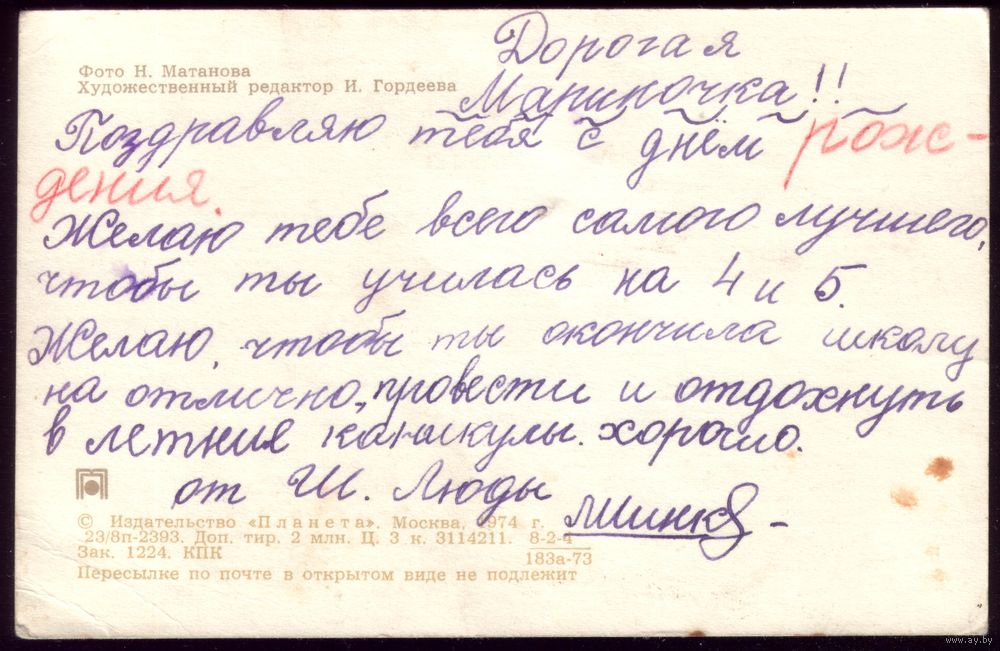 Фото Н. Матанова
Художественный редактор И. Гордеева
Дорогая
Мариночка!!
Поздравляю тебя с днём рож-
дения.
Желаю тебе всего самого лучшего,
чтобы ты училась на 4 и 5.
Желаю, чтобы ты окончила школу
на отлично, провести и отдохнуть
в летние каникулы. хорошо.
от Ш. Люды
© Издательство «Планета». Москва, 1974 г.
23/8п-2393. Доп. тир. 2 млн. Ц. 3 к. 3114211. 8-2-4
183а-73
Зак. 1224. КПК
Пересылке по почте в открытом виде не подлежит
www.ay.by